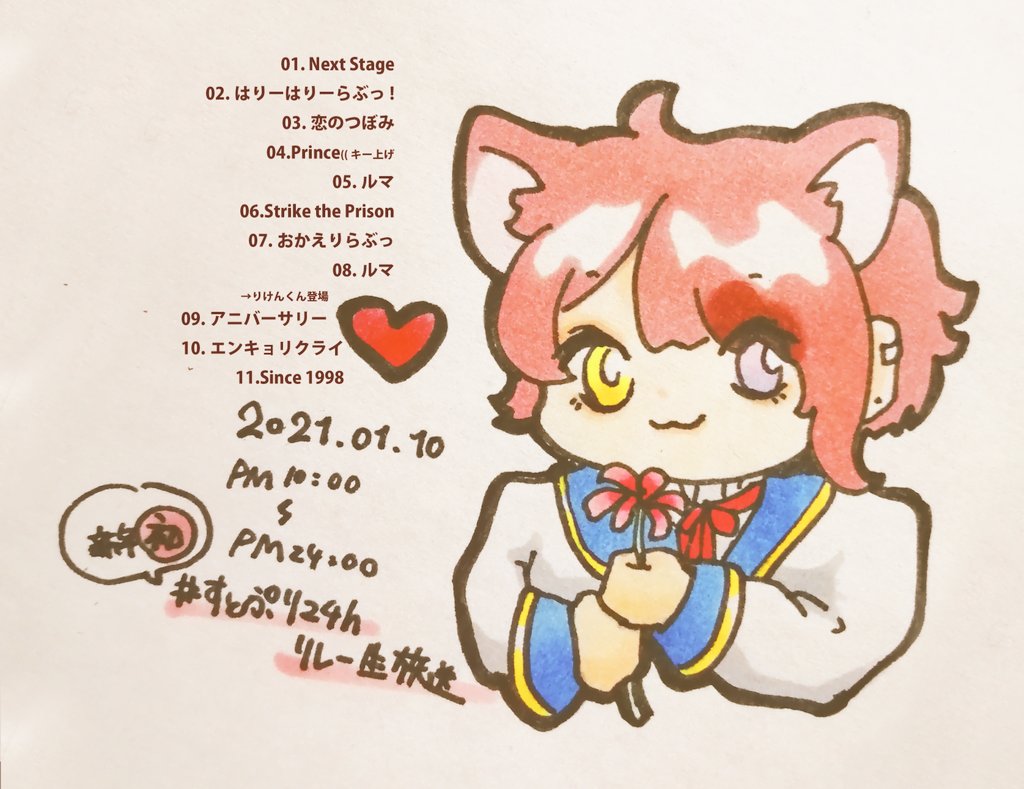 01. Next Stage
02. はりーはりーらぶっ！
03. 恋のつぼみ
04.Prince(( キー上げ
05. ルマ
06.Strike the Prison
07. おかえりらぶっ
08. ルマ
→りけんくん登場
09. アニバーサリー
10. エンキョリクライ
11.Since 1998
2021.01.10
PM 10:00
〜
PM 24:00
新年初
#すとぷり24h
リレー生放送